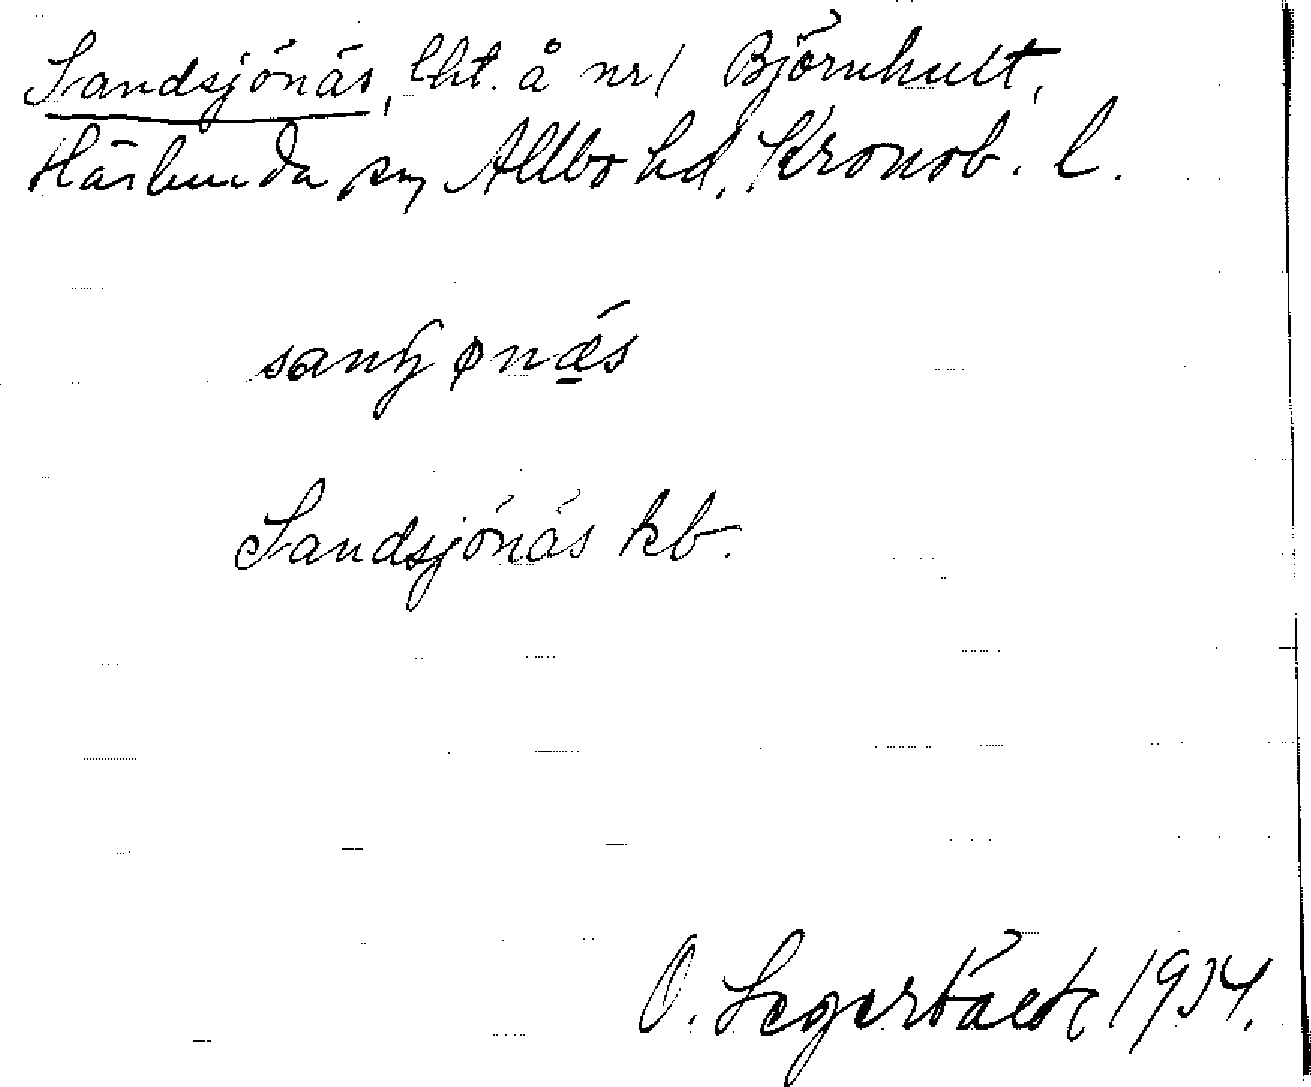 Sandsjönäs, lht. å nr 1 Björnhult,
Härlunda sn, Allbo hd, Kronob. l.
Sandsjönäs kb.
O. Segerbäck 1934.